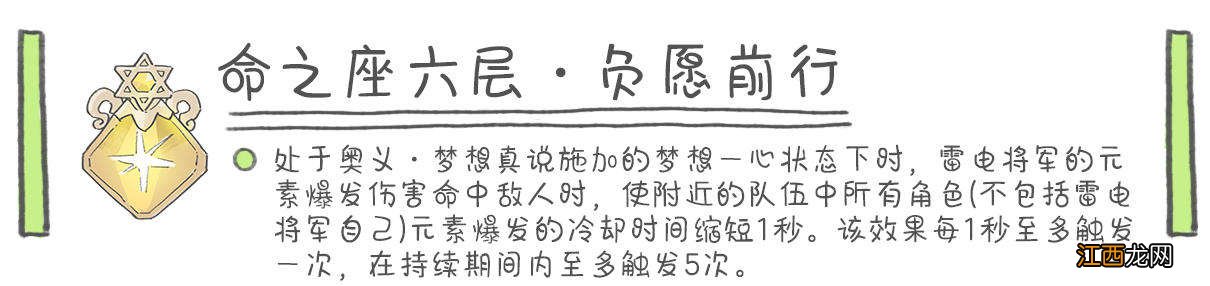 命之座六层·负愿前行
处于奥义·梦想真说施加的梦想一心状态下时，雷电将军的元
素爆发伤害命中敌人时，使附近的队伍中所有角色(不包括雷电
将军自己)元素爆发的冷却时间缩短1秒。该效果每1秒至多触发
一次，在持续期间内至多触发5次。
江西龙网